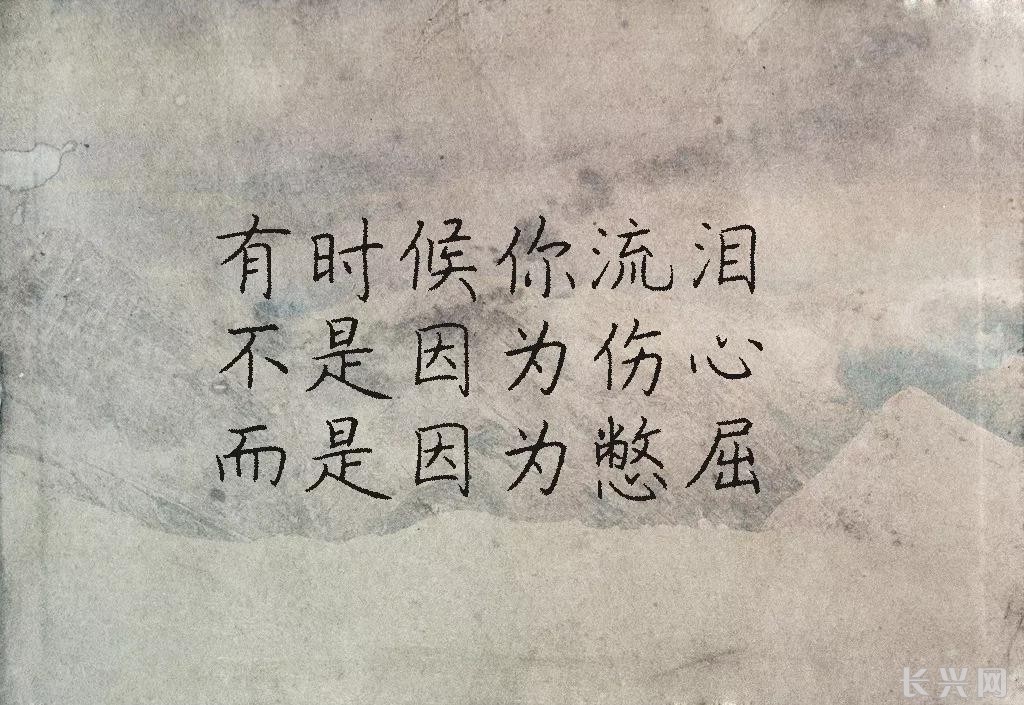 有时候你流泪
不是因为伤心
而是因为憋屈
长兴网